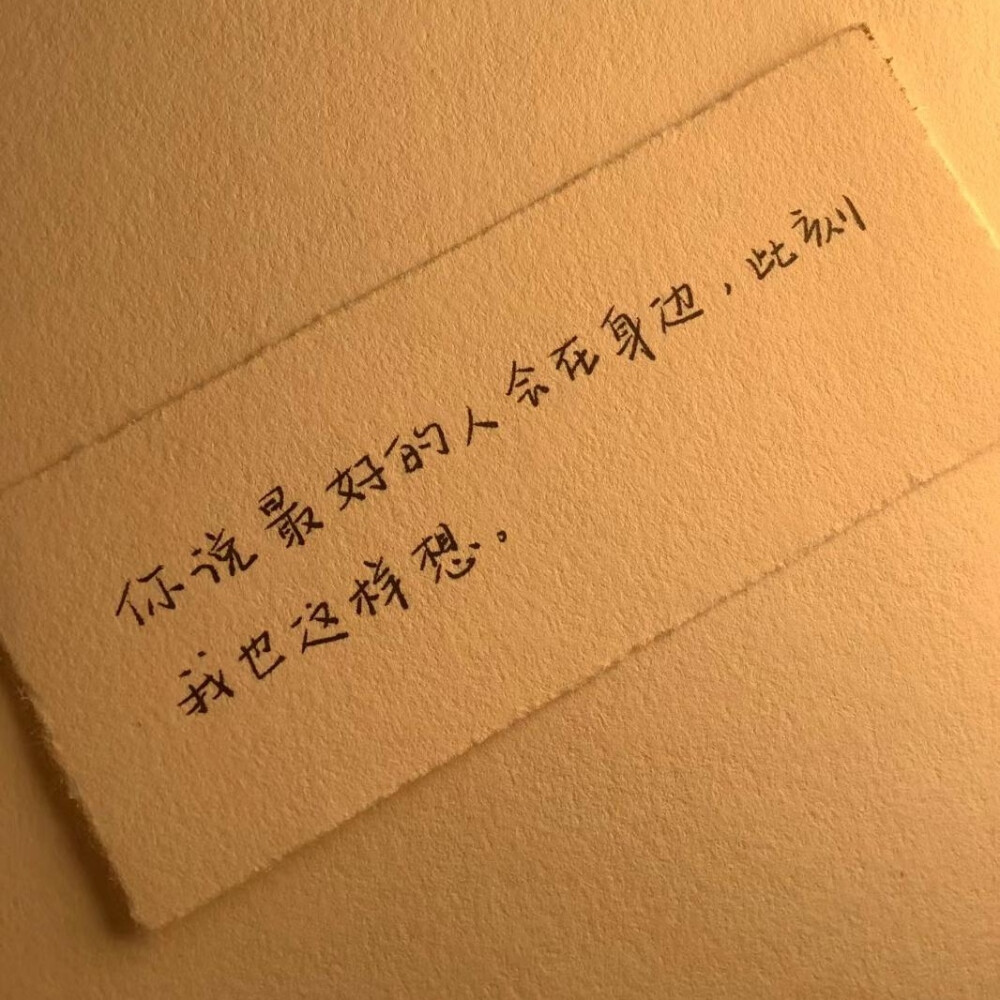 你说最好的人会在身边，此刻
我也这样想。